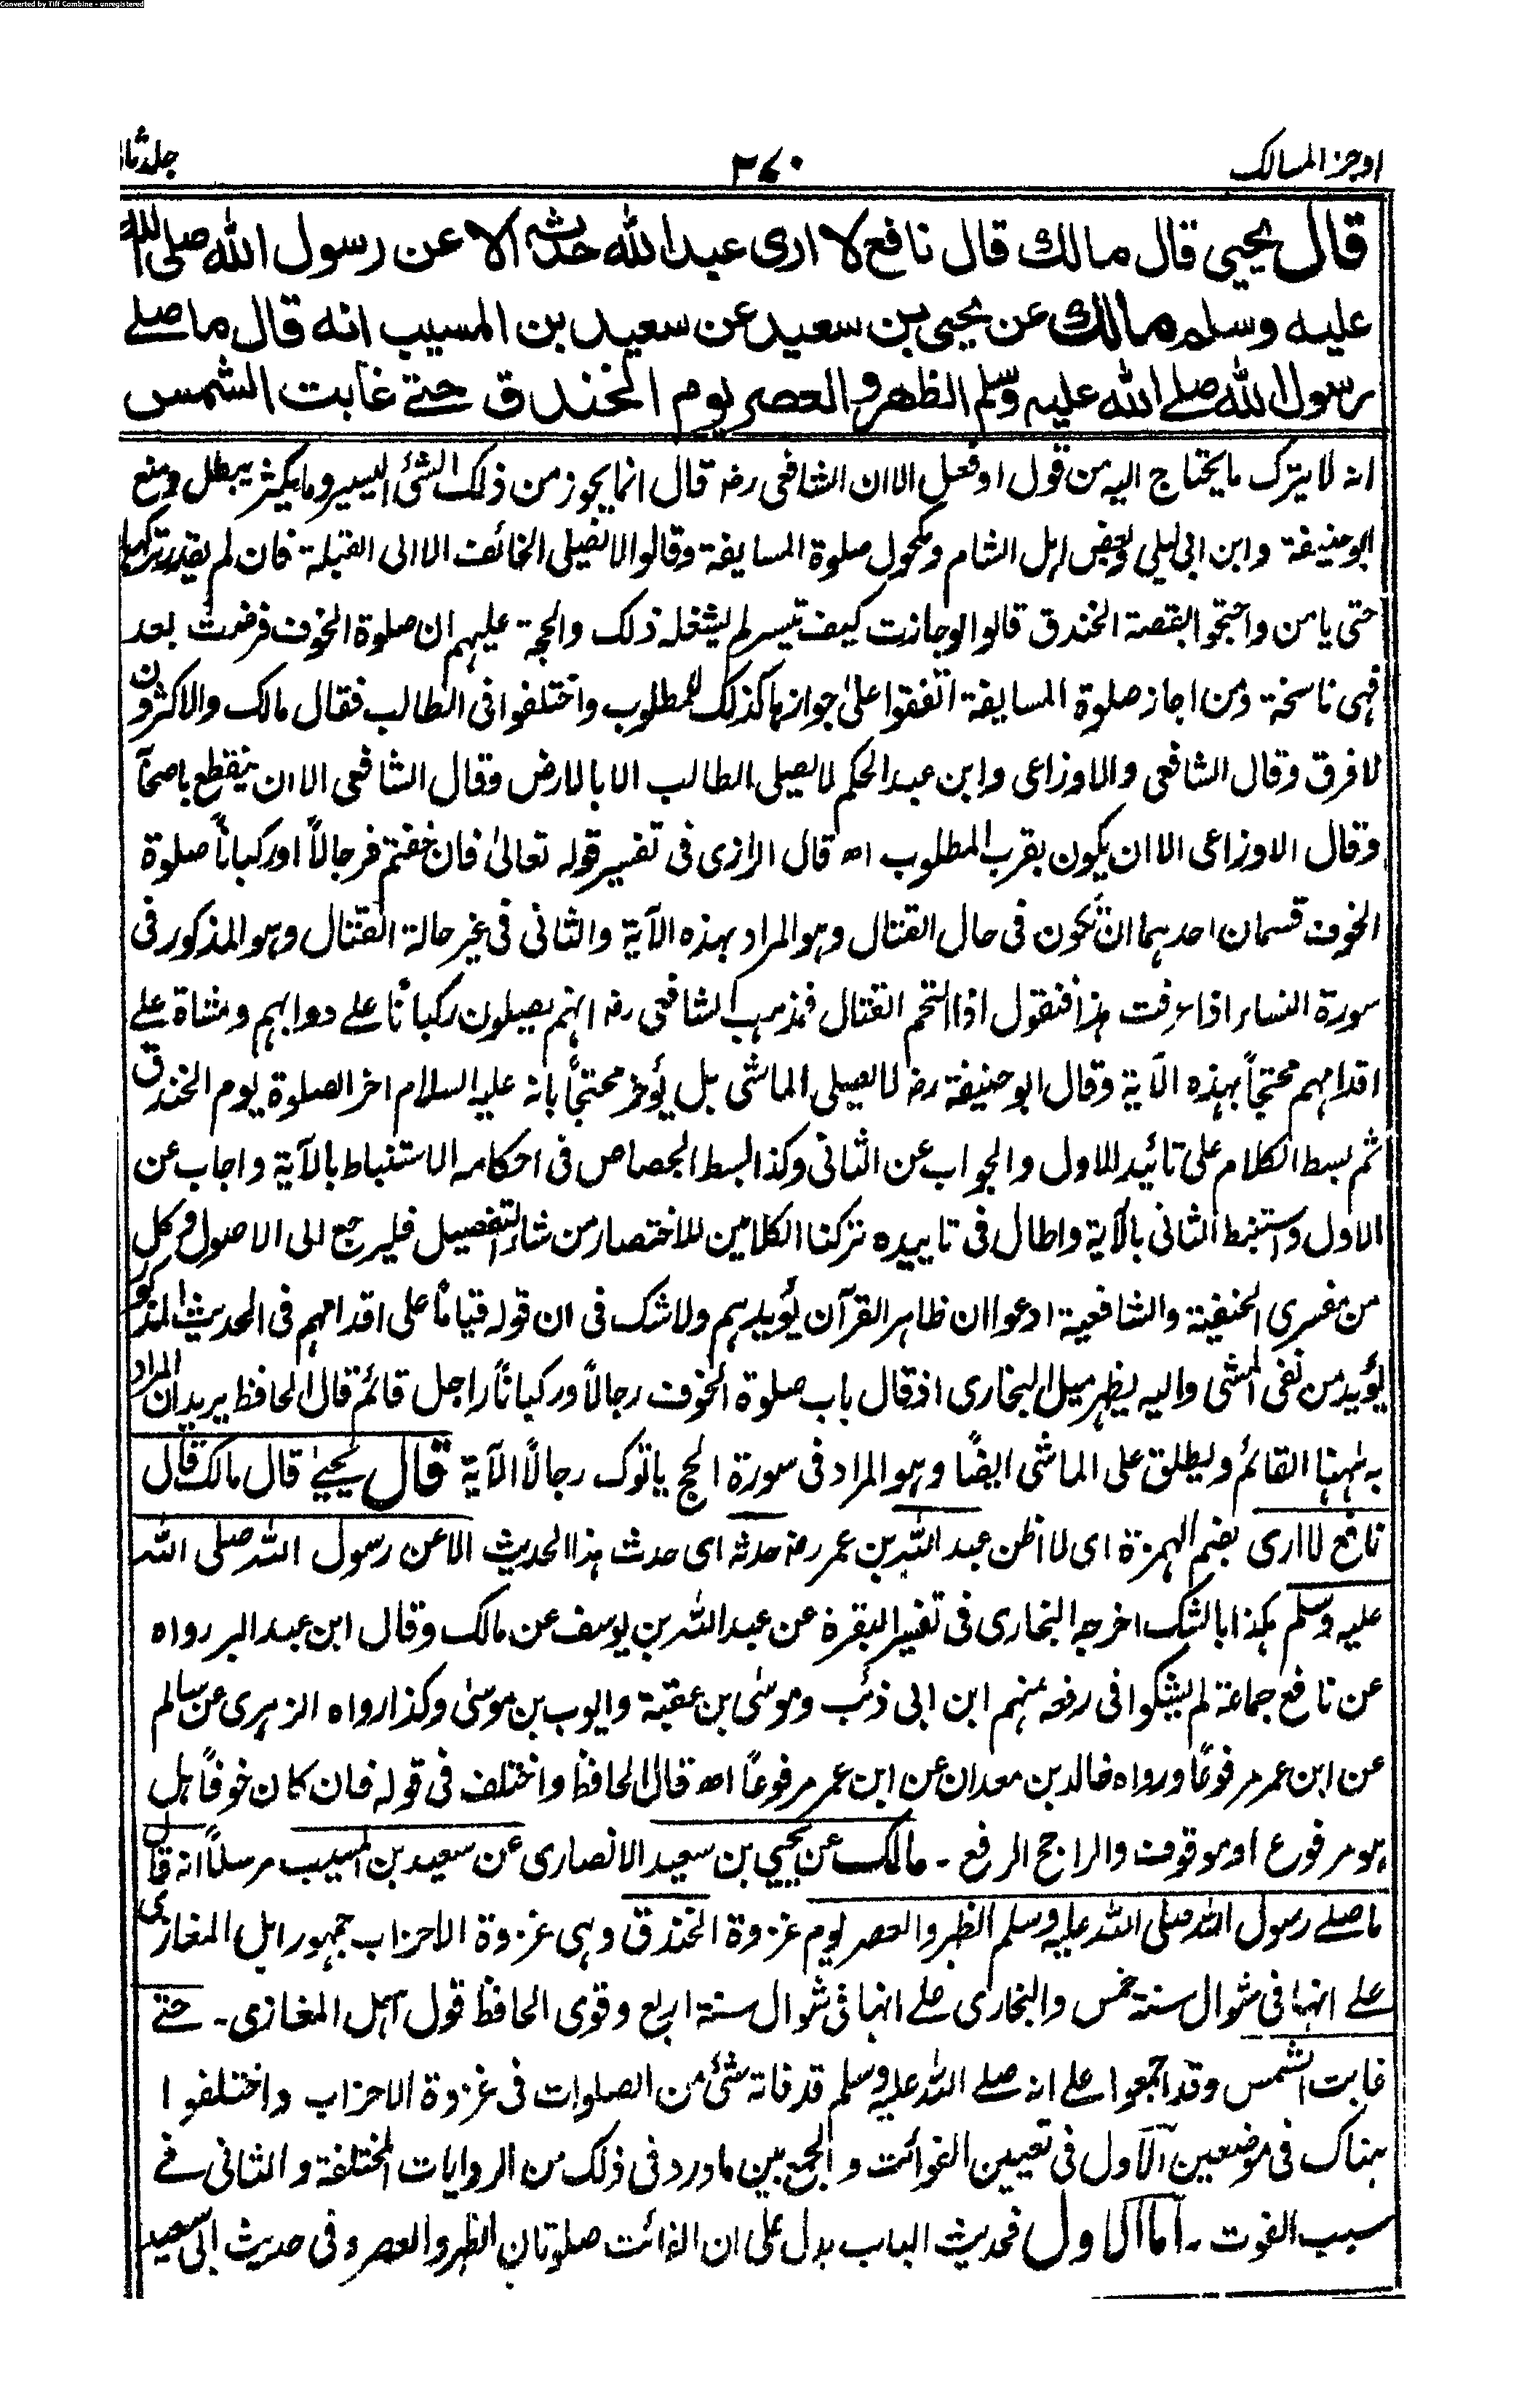 Converted by Tiff Combine - unregistered
اوجز المسالك ٢٦٠ جلد ثان
قال يحيى قال مالك قال نافع لا ارى عبد الله حدثه الا عن رسول الله صلى الله
عليه وسلم مالك عن يحيى بن سعيد عن سعيد بن المسيب انه قال ما صلے
رسول الله صلے الله عليه وسلم الظهر والعصر يوم الخندق حتے غابت الشمس
انه لا يترك ما يحتاج اليه من قول او فعل الا ان الشافعى رضـ قال انما يجوز من ذلك الشئ اليسير وما يكثر يبطل ومنع
ابو حنيفة وابن ابى ليلى وبعض اهل الشام ومكحول صلوة المسايفة وقالوا لا يصلى الخائف الا الى القبلة فان لم يقدر تركها
حتى يامن واحتجوا بقصة الخندق قالوا لو جازت كيف تيسر لم يشغله ذلك والحجة عليهم ان صلوة الخوف فرضت بعد
فهى ناسخة ومن اجاز صلوة المسايفة اتفقوا على جوازها كذلك للمطلوب واختلفوا فى الطالب فقال مالك والاكثرون
لا فرق وقال الشافعى والاوزاعى وابن عبد الحكم لا يصلى الطالب الا بالارض وقال الشافعى الا ان ينقطع باصحابه
وقال الاوزاعى الا ان يكون بقرب المطلوب اھ قال الرازى فى تفسير قوله تعالىٰ فان خفتم فرجالاً او ركباناً صلوة
الخوف قسمان احدهما ان تكون فى حال القتال وهو المراد بهذه الآية والثانى فى غير حالة القتال وهو المذكور فى
سورة النساء اذا عرفت هذا فنقول اذا التحم القتال فمذهب الشافعى رضـ انهم يصلون ركباناً علے دوابهم ومشاة علے
اقدامهم محتجاً بهذه الآية وقال ابو حنيفة رضـ لا يصلى الماشى بل يؤخر محتجاً بانه عليه السلام اخر الصلوة يوم الخندق
ثم بسط الكلام على تائيد الاول والجواب عن الثانى وكذا بسط الجصاص فى احكامه الاستنباط بالآية واجاب عن
الاول واستنبط الثانى بالآية واطال فى تاييده تركنا الكلامين للاختصار من شاء التفصيل فليرجع الى الاصول وكل
من مفسرى الحنفية والشافعية ادعوا ان ظاهر القرآن يؤيدهم ولا شك فى ان قوله قياماً على اقدامهم فى الحديث المذكور
يؤيد من نفى المشى واليه يظهر ميل البخارى اذ قال باب صلوة الخوف رجالاً وركباناً راجل قائم قال الحافظ يريد ان المراد
به ههنا القائم ويطلق على الماشى ايضًا وهو المراد فى سورة الحج ياتوك رجالاً الآية قال يحييٰ قال مالك قال
نافع لا ارى بضم الهمزة اى لا اظن عبد الله بن عمر رضـ حدثه اى حدث هذا الحديث الا عن رسول الله صلى الله
عليه وسلم هكذا بالشك اخرجه البخارى فى تفسير البقرة عن عبد الله بن يوسف عن مالك وقال ابن عبد البر رواه
عن نافع جماعة لم يشكوا فى رفعه منهم ابن ابى ذئب وموسىٰ بن عقبة وايوب بن موسىٰ وكذا رواه الزهرى عن سالم
عن ابن عمر مرفوعًا ورواه خالد بن معدان عن ابن عمر مرفوعًا اھ قال الحافظ واختلف فى قوله فان كان خوفاً هل
هو مرفوع او موقوف والراجح الرفع ـ مالك عن يحيي بن سعيد الانصارى عن سعيد بن المسيب مرسلاً انه قال
ما صلے رسول الله صلى الله عليه وسلم الظهر والعصر يوم غزوة الخندق وهى غزوة الاحزاب جمهور اهل المغازى
علے انها فى شوال سنة خمس والبخارى علے انها فى شوال سنة اربع وقوى الحافظ قول اهل المغازى ـ حتے
غابت الشمس وقد اجمعوا علے انه صلے الله عليه وسلم قد فاته شئ من الصلوات فى غزوة الاحزاب واختلفوا
هناك فى موضعين الاول فى تعيين الفوائت والجمع بين ما ورد فى ذلك من الروايات المختلفة والثانى فے
سبب الفوت ـ اما الاول فحديث الباب يدل على ان الفائت صلوتان الظهر والعصر وفى حديث ابى سعيد